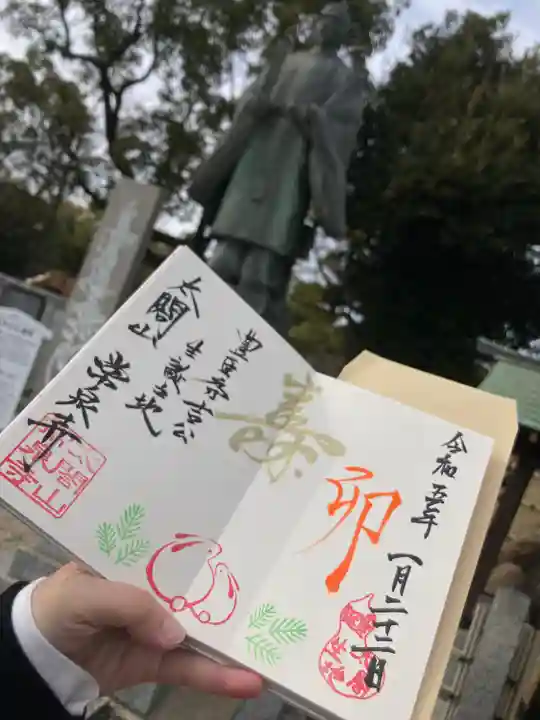 令和五年
一月二十二日
卯
寿
豊臣秀吉公
生誕之地
太閤山
常泉寺
太閤山
常泉寺